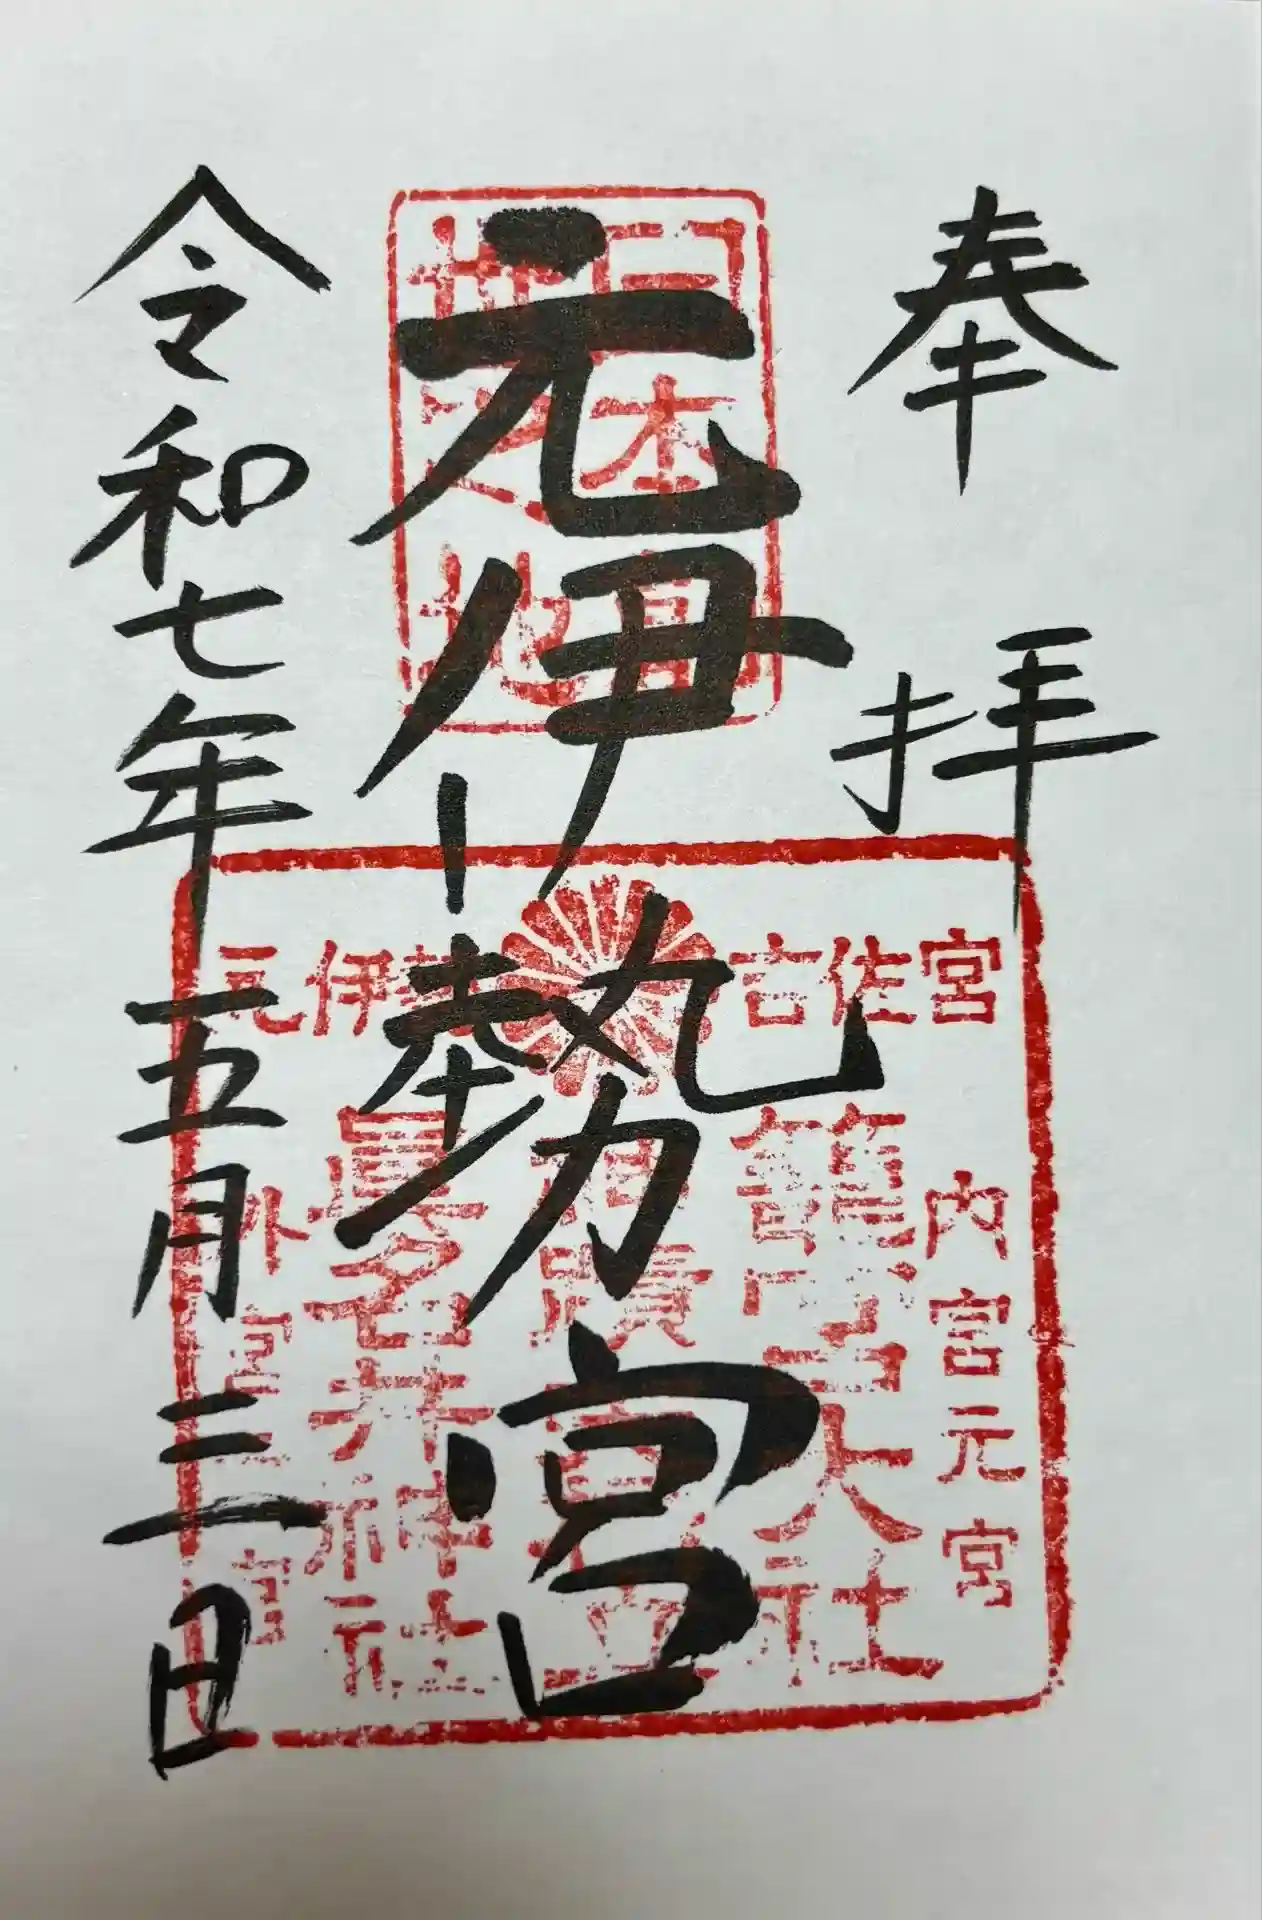 奉拝
元伊勢宮
令和七年五月三日
日本
之地
吉佐宮
元伊勢
内宮元宮
籠宮大社
眞名井神社
外宮元宮